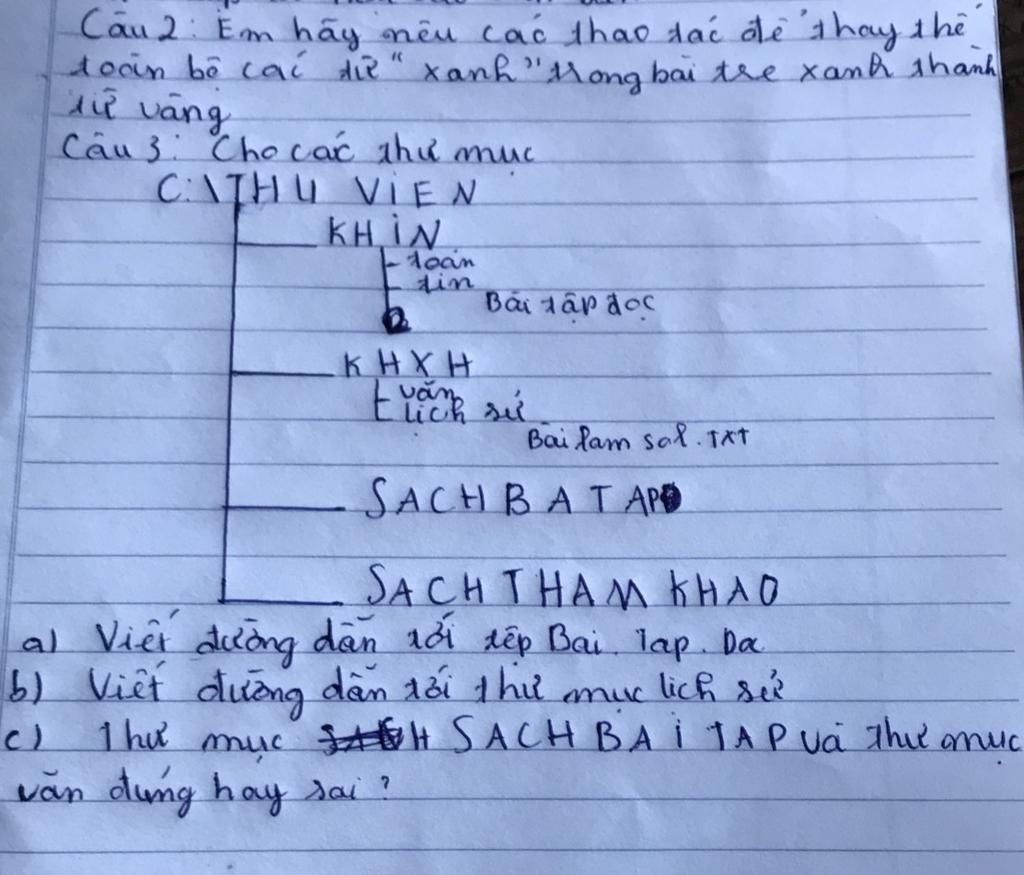 Câu 2: Em hãy nêu các thao tác để thay thế
toàn bộ các từ "xanh" trong bài tre xanh thành
từ vàng
Câu 3: Cho các thư mục
C:\THU VIEN
KHiN
toán
tin
Bài tập đọc
KHXH
văn
lịch sử
Bài lam sol.TXT
SACH BA TAP
SACH THAM KHAO
a) Viết đường dẫn tới tệp Bai. Tap. Da
b) Viết đường dẫn tới thư mục lịch sử
c) Thư mục SACH BAi TAP và thư mục
văn đúng hay sai?